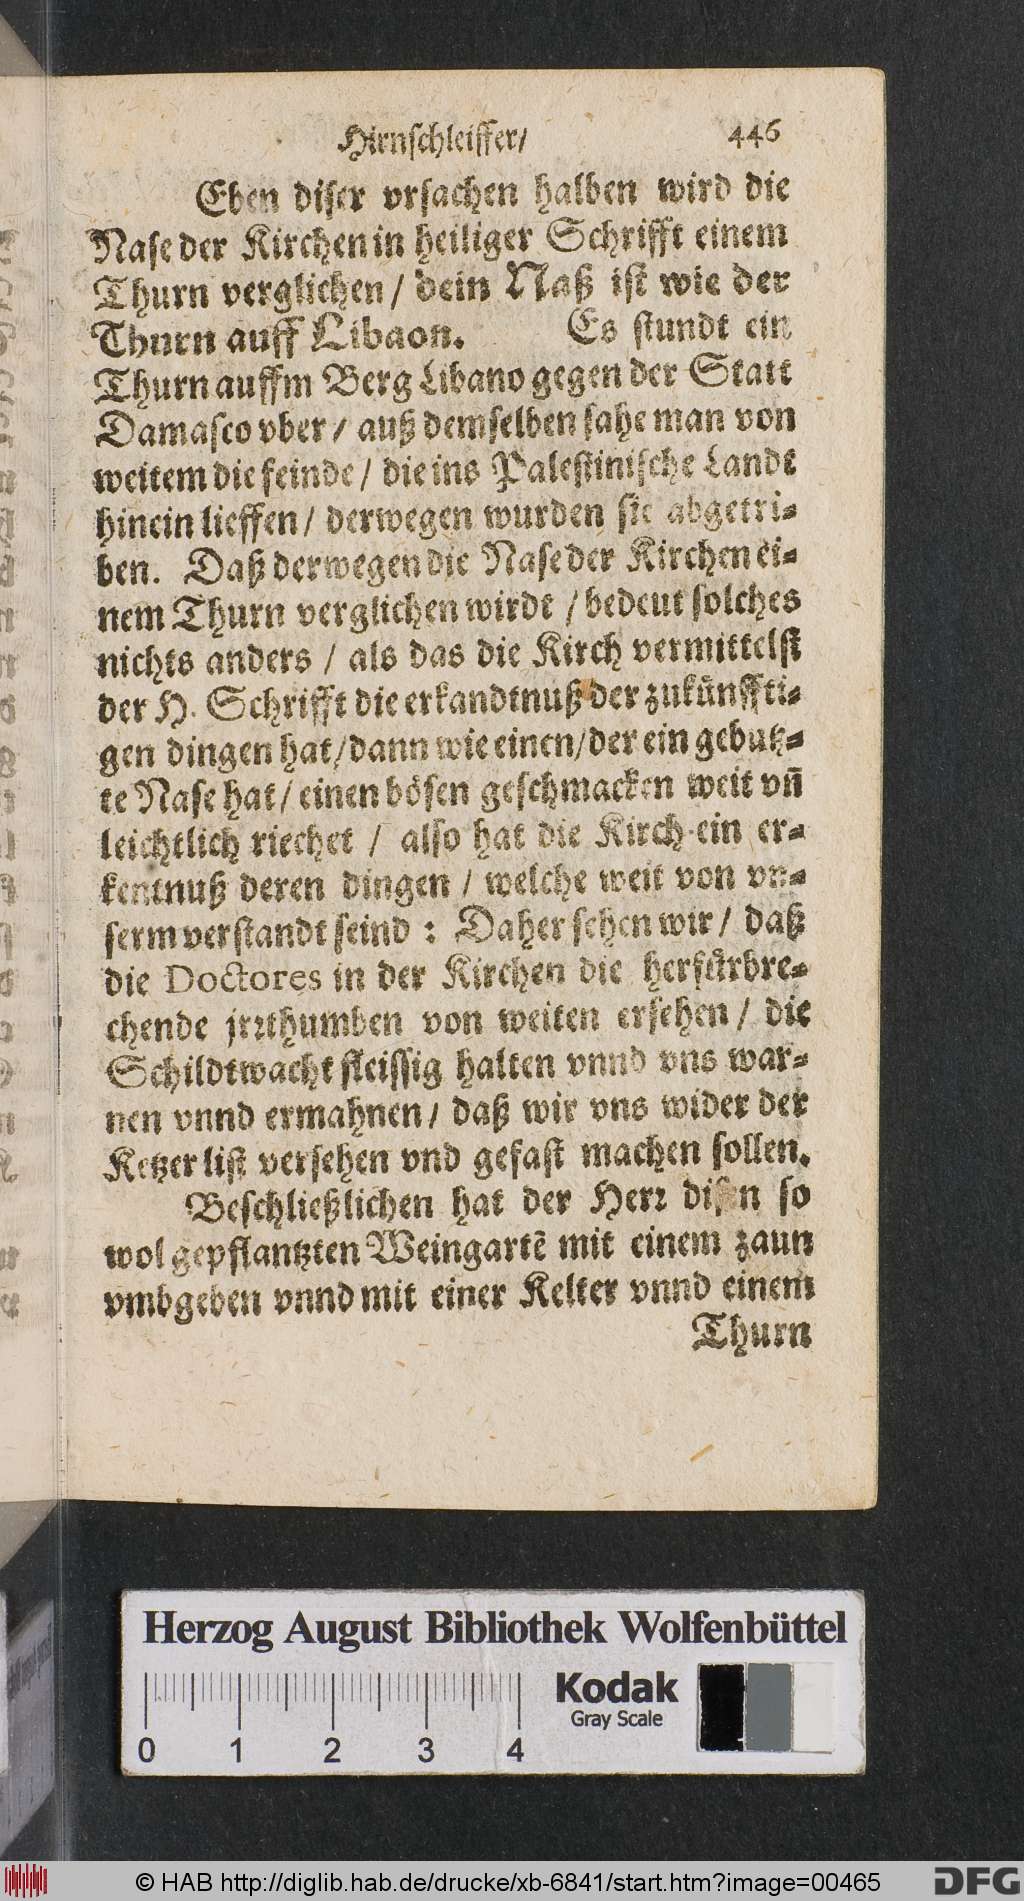 Hirnschleiffer/ 446
Eben diser vrsachen halben wird die
Nase der Kirchen in heiliger Schrifft einem
Thurn verglichen / dein Naß ist wie der
Thurn auff Libaon. Es stundt ein
Thurn auffm Berg Libano gegen der Statt
Damasco vber / auß demselben sahe man von
weitem die feinde / die ins Palestinische Landt
hinein lieffen / derwegen wurden sie abgetri-
ben. Daß derwegen die Nase der Kirchen ei-
nem Thurn verglichen wirdt / bedeut solches
nichts anders / als das die Kirch vermittelst
der H. Schrifft die erkandtnuß der zukünffti-
gen dingen hat / dann wie einen / der ein gebutz-
te Nase hat / einen bösen geschmacken weit vn̄
leichtlich riechet / also hat die Kirch ein er-
kentnuß deren dingen / welche weit von vn-
serm verstandt seind : Daher sehen wir / daß
die Doctores in der Kirchen die herfürbre-
chende jrrthumben von weiten ersehen / die
Schildtwacht fleissig halten vnnd vns war-
nen vnnd ermahnen / daß wir vns wider der
Ketzer list versehen vnd gefast machen sollen.
Beschließlichen hat der Herr disen so
wol gepflantzten Weingartē mit einem zaun
vmbgeben vnnd mit einer Kelter vnnd einem
Thurn
Herzog August Bibliothek Wolfenbüttel
Kodak
Gray Scale
0 1 2 3 4
© HAB http://diglib.hab.de/drucke/xb-6841/start.htm?image=00465
DFG